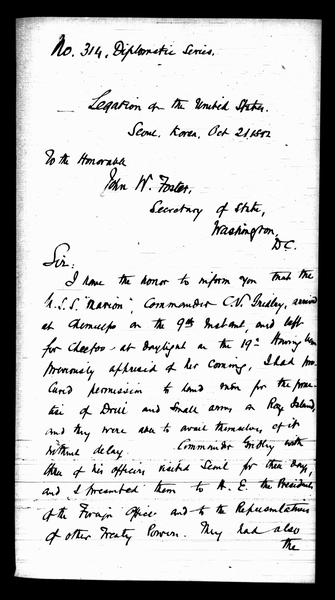 No. 314, Diplomatic Series.
Legation of the United States.
Seoul, Korea, Oct 21, 1892
To the Honorable
John W. Foster,
Secretary of State,
Washington,
D.C.
Sir:
I have the honor to inform you that the
U.S.S. "Marion", Commander C.V. Gridley, arrived
at Chemulpo on the 9th Instant, and left
for Cheefoo at daylight on the 19th. Having been
previously apprised of her coming, I had pro-
cured permission to land men for the prac-
tice of Drill and Small arms on Roze Island,
and they were able to avail themselves of it
without delay. Commander Gridley with
of his officers visited Seoul for three days,
and I presented them to H. E. the President
of the Foreign Office and to the Representatives
of other Treaty Powers. They had also
the